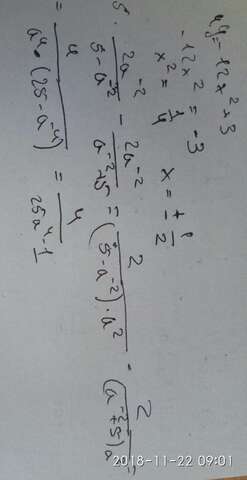 y'= -12x²+3
-12x² = -3
x² = 1/4 x = ± 1/2
5. 2a⁻²/(5-a⁻²) - 2a⁻²/(a⁻²+5) = 2/((5-a⁻²)·a²) · 2/((a⁻²+5)a²) =
= 4/(a⁴·(25-a⁻⁴)) = 4/(25a⁴-1)
2018-11-22 09:01